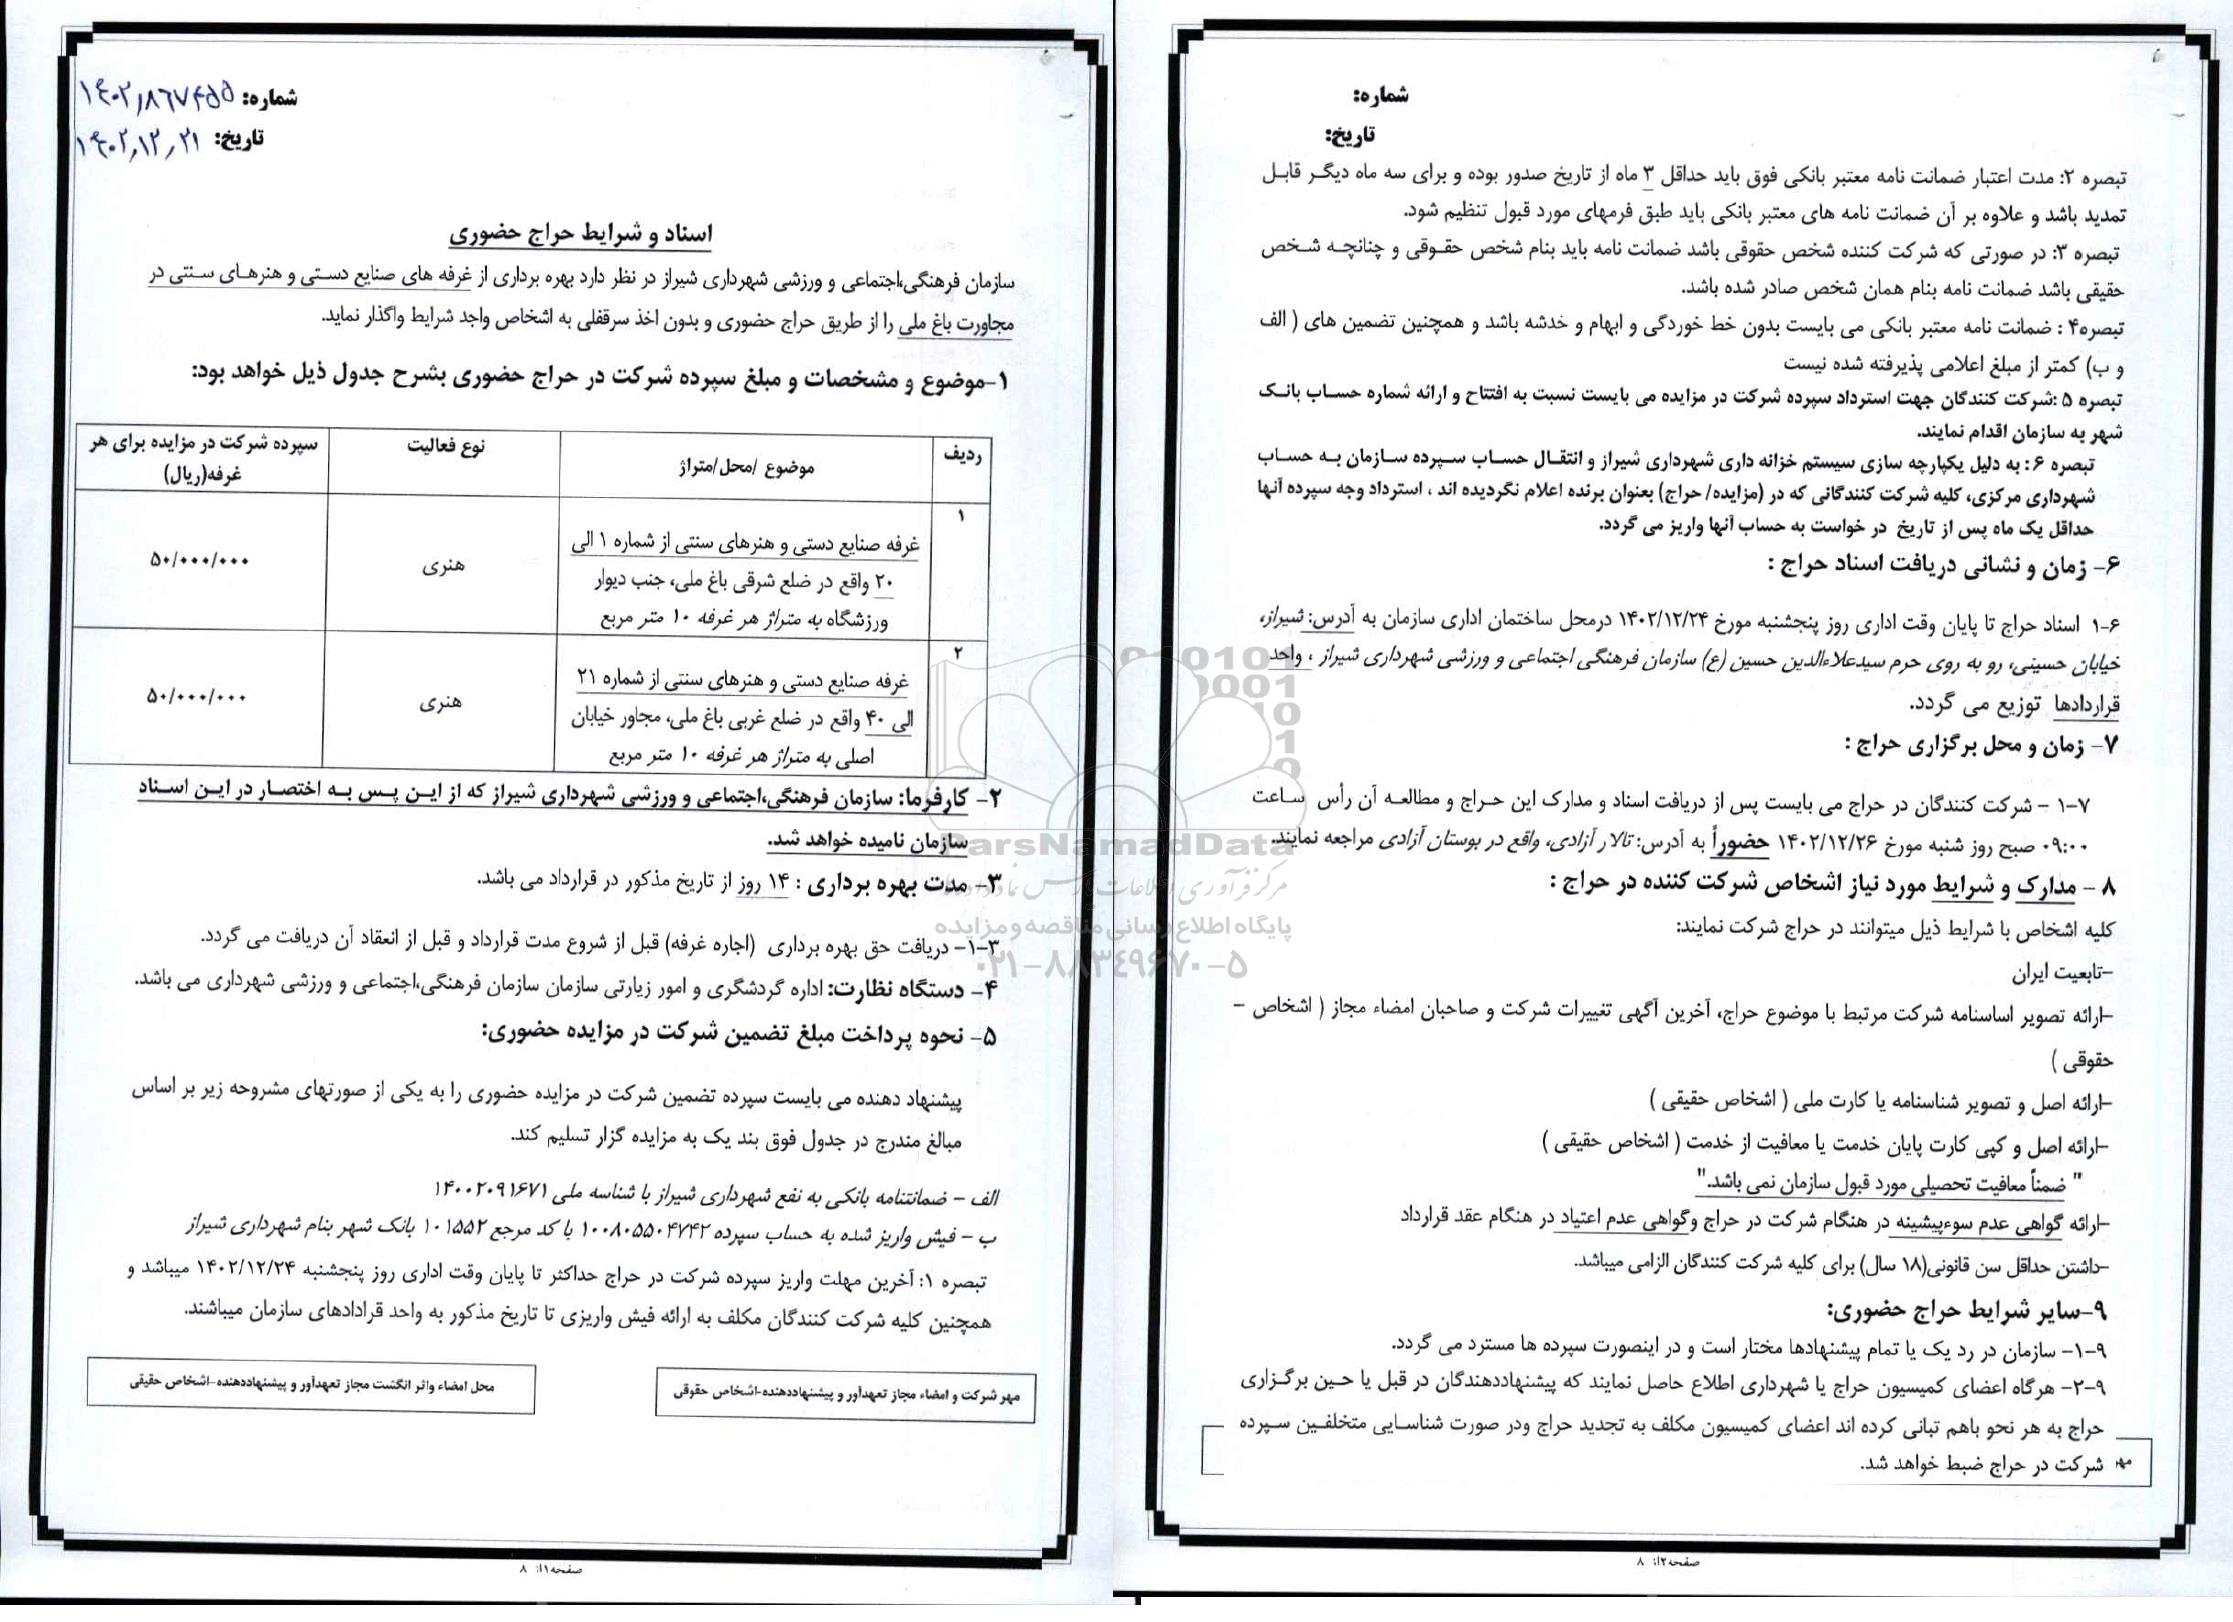 شماره: ۱۴۰۲/۸۶۷۴۵۵
تاریخ: ۱۴۰۲/۱۲/۲۱
اسناد و شرایط حراج حضوری
سازمان فرهنگی،اجتماعی و ورزشی شهرداری شیراز در نظر دارد بهره برداری از غرفه های صنایع دستی و هنرهای سنتی در
مجاورت باغ ملی را از طریق حراج حضوری و بدون اخذ سرقفلی به اشخاص واجد شرایط واگذار نماید.
۱-موضوع و مشخصات و مبلغ سپرده شرکت در حراج حضوری بشرح جدول ذیل خواهد بود:
ردیف
موضوع /محل/متراژ
نوع فعالیت
سپرده شرکت در مزایده برای هر
غرفه(ریال)
۱
غرفه صنایع دستی و هنرهای سنتی از شماره ۱ الی
۲۰ واقع در ضلع شرقی باغ ملی، جنب دیوار
ورزشگاه به متراژ هر غرفه ۱۰ متر مربع
هنری
۵۰/۰۰۰/۰۰۰
۲
غرفه صنایع دستی و هنرهای سنتی از شماره ۲۱
الی ۴۰ واقع در ضلع غربی باغ ملی، مجاور خیابان
اصلی به متراژ هر غرفه ۱۰ متر مربع
هنری
۵۰/۰۰۰/۰۰۰
۲- کارفرما: سازمان فرهنگی،اجتماعی و ورزشی شهرداری شیراز که از این پس به اختصار در این اسناد
سازمان نامیده خواهد شد.
۳- مدت بهره برداری : ۱۴ روز از تاریخ مذکور در قرارداد می باشد.
۳-۱- دریافت حق بهره برداری (اجاره غرفه) قبل از شروع مدت قرارداد و قبل از انعقاد آن دریافت می گردد.
۴- دستگاه نظارت: اداره گردشگری و امور زیارتی سازمان سازمان فرهنگی،اجتماعی و ورزشی شهرداری می باشد.
۵- نحوه پرداخت مبلغ تضمین شرکت در مزایده حضوری:
پیشنهاد دهنده می بایست سپرده تضمین شرکت در مزایده حضوری را به یکی از صورتهای مشروحه زیر بر اساس
مبالغ مندرج در جدول فوق بند یک به مزایده گزار تسلیم کند.
الف - ضمانتنامه بانکی به نفع شهرداری شیراز با شناسه ملی ۱۴۰۰۲۰۹۱۶۷۱
ب - فیش واریز شده به حساب سپرده ۱۰۰۸۰۵۵۰۴۷۴۲ با کد مرجع ۱۰۱۵۵۲ بانک شهر بنام شهرداری شیراز
تبصره ۱: آخرین مهلت واریز سپرده شرکت در حراج حداکثر تا پایان وقت اداری روز پنجشنبه ۱۴۰۲/۱۲/۲۴ میباشد و
همچنین کلیه شرکت کنندگان مکلف به ارائه فیش واریزی تا تاریخ مذکور به واحد قرادادهای سازمان میباشند.
مهر شرکت و امضاء مجاز تعهدآور و پیشنهاددهنده-اشخاص حقوقی
محل امضاء واثر انگشت مجاز تعهدآور و پیشنهاددهنده-اشخاص حقیقی
صفحه۱از ۸
شماره:
تاریخ:
تبصره ۲: مدت اعتبار ضمانت نامه معتبر بانکی فوق باید حداقل ۳ ماه از تاریخ صدور بوده و برای سه ماه دیگر قابل
تمدید باشد و علاوه بر آن ضمانت نامه های معتبر بانکی باید طبق فرمهای مورد قبول تنظیم شود.
تبصره ۳: در صورتی که شرکت کننده شخص حقوقی باشد ضمانت نامه باید بنام شخص حقوقی و چنانچه شخص
حقیقی باشد ضمانت نامه بنام همان شخص صادر شده باشد.
تبصره۴ : ضمانت نامه معتبر بانکی می بایست بدون خط خوردگی و ابهام و خدشه باشد و همچنین تضمین های ( الف
و ب) کمتر از مبلغ اعلامی پذیرفته شده نیست
تبصره ۵ :شرکت کنندگان جهت استرداد سپرده شرکت در مزایده می بایست نسبت به افتتاح و ارائه شماره حساب بانک
شهر به سازمان اقدام نمایند.
تبصره ۶ : به دلیل یکپارچه سازی سیستم خزانه داری شهرداری شیراز و انتقال حساب سپرده سازمان به حساب
شهرداری مرکزی، کلیه شرکت کنندگانی که در (مزایده/ حراج) بعنوان برنده اعلام نگردیده اند ، استرداد وجه سپرده آنها
حداقل یک ماه پس از تاریخ در خواست به حساب آنها واریز می گردد.
۶- زمان و نشانی دریافت اسناد حراج :
۶-۱ اسناد حراج تا پایان وقت اداری روز پنجشنبه مورخ ۱۴۰۲/۱۲/۲۴ درمحل ساختمان اداری سازمان به آدرس: شیراز،
خیابان حسینی، رو به روی حرم سیدعلاءالدین حسین (ع) سازمان فرهنگی اجتماعی و ورزشی شهرداری شیراز ، واحد
قراردادها توزیع می گردد.
۷- زمان و محل برگزاری حراج :
۷-۱ - شرکت کنندگان در حراج می بایست پس از دریافت اسناد و مدارک این حراج و مطالعه آن رأس ساعت
۰۹:۰۰ صبح روز شنبه مورخ ۱۴۰۲/۱۲/۲۶ حضوراً به آدرس: تالار آزادی، واقع در بوستان آزادی مراجعه نمایند.
۸ - مدارک و شرایط مورد نیاز اشخاص شرکت کننده در حراج :
کلیه اشخاص با شرایط ذیل میتوانند در حراج شرکت نمایند:
-تابعیت ایران
-ارائه تصویر اساسنامه شرکت مرتبط با موضوع حراج، آخرین آگهی تغییرات شرکت و صاحبان امضاء مجاز ( اشخاص -
حقوقی )
-ارائه اصل و تصویر شناسنامه یا کارت ملی ( اشخاص حقیقی )
-ارائه اصل و کپی کارت پایان خدمت یا معافیت از خدمت ( اشخاص حقیقی )
" ضمناً معافیت تحصیلی مورد قبول سازمان نمی باشد."
-ارائه گواهی عدم سوءپیشینه در هنگام شرکت در حراج وگواهی عدم اعتیاد در هنگام عقد قرارداد
-داشتن حداقل سن قانونی(۱۸ سال) برای کلیه شرکت کنندگان الزامی میباشد.
۹-سایر شرایط حراج حضوری:
۹-۱- سازمان در رد یک یا تمام پیشنهادها مختار است و در اینصورت سپرده ها مسترد می گردد.
۹-۲- هرگاه اعضای کمیسیون حراج یا شهرداری اطلاع حاصل نمایند که پیشنهاددهندگان در قبل یا حین برگزاری
حراج به هر نحو باهم تبانی کرده اند اعضای کمیسیون مکلف به تجدید حراج ودر صورت شناسایی متخلفین سپرده
شرکت در حراج ضبط خواهد شد.
مهر
صفحه۲از ۸
ParsNamadData
پایگاه اطلاع رسانی مناقصه و مزایده
۰۲۱-۸۸۳۴۹۶۷۰-۵